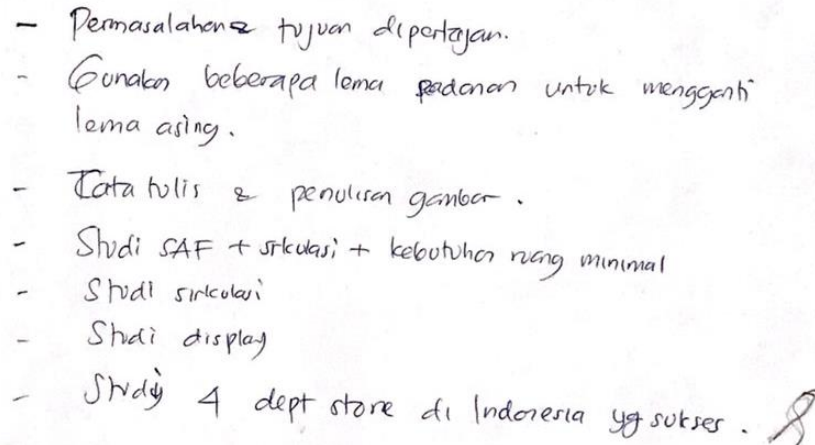 - Permasalahan & tujuan dipertajam.
- Gunakan beberapa lema padanan untuk mengganti
lema asing.
- Tata tulis & penulisan gambar.
- Studi SAF + sirkulasi + kebutuhan ruang minimal
- Studi sirkulasi
- Studi display
- Study 4 dept store di Indonesia yg sukses.